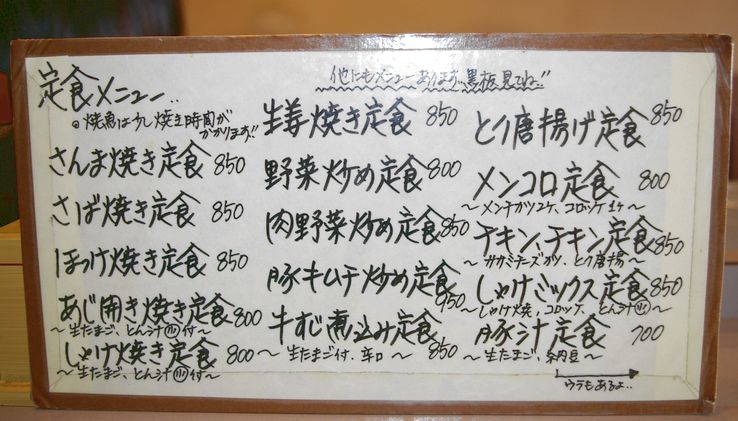 定食メニュー..
他にもメニューあります。黒板見てね!!
◎焼魚は少し焼き時間が
かかります!!
さんま焼き定食 850
さば焼き定食 850
ほっけ焼き定食 850
あじ開き焼き定食 800
〜生たまご、とん汁㋷付〜
しゃけ焼き定食 800
〜生たまご、とん汁㋷付〜
生姜焼き定食 850
野菜炒め定食 800
肉野菜炒め定食 850
豚キムチ炒め定食 950
牛すじ煮込み定食 850
〜生たまご付、辛口〜
とり唐揚げ定食 850
メンコロ定食 800
〜メンチカツ2ケ、コロッケ1ケ〜
チキン、チキン定食 850
〜ササミチーズカツ、とり唐揚〜
しゃけミックス定食 850
〜しゃけ焼、コロッケ、とん汁〜
豚汁定食 700
〜生たまご、納豆〜
ウラもあるよ..